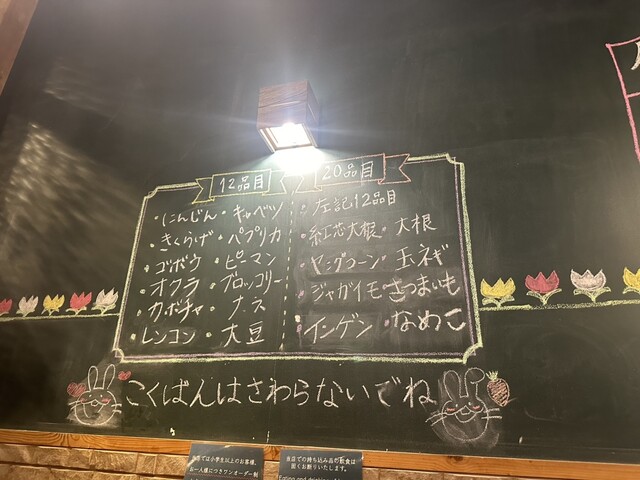 12品目
・にんじん・キャベツ
・きくらげ・パプリカ
・ゴボウ・ピーマン
・オクラ・ブロッコリー
・カボチャ・ナス
・レンコン・大豆
20品目
・左記12品目
・紅芯大根・大根
・ヤングコーン・玉ネギ
・ジャガイモ・さつまいも
・インゲン・なめこ
こくばんはさわらないでね
当店では小学生以上のお客様、
お一人様につきワンオーダー制
当店での持ち込み品の飲食は
固くお断りいたします。